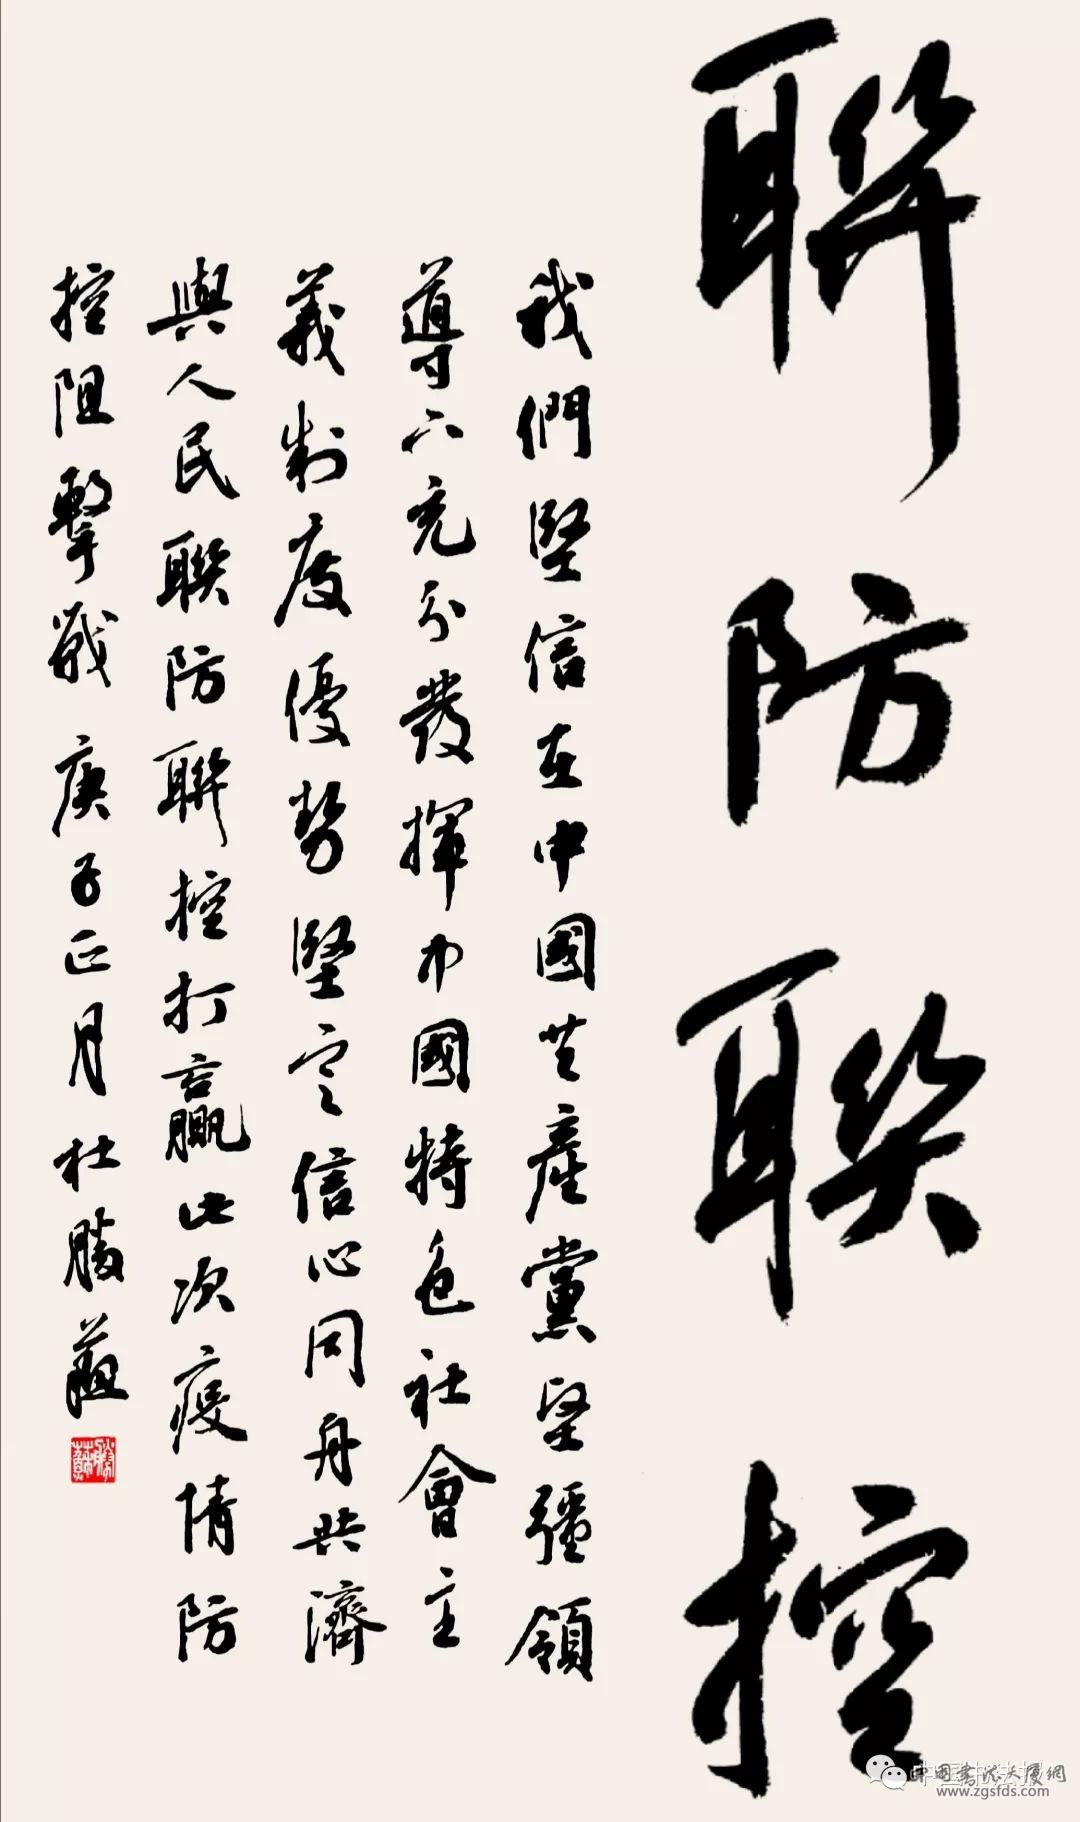 聯防聯控
我們堅信在中國共產黨堅彊領
導下充分發揮中國特色社會主
義制度優勢堅定信心同舟共濟
與人民聯防聯控打贏此次疫情防
控阻擊戰 庚子正月杜勝蘊
中国书法报
中国书法大厦網
www.zgsfds.com